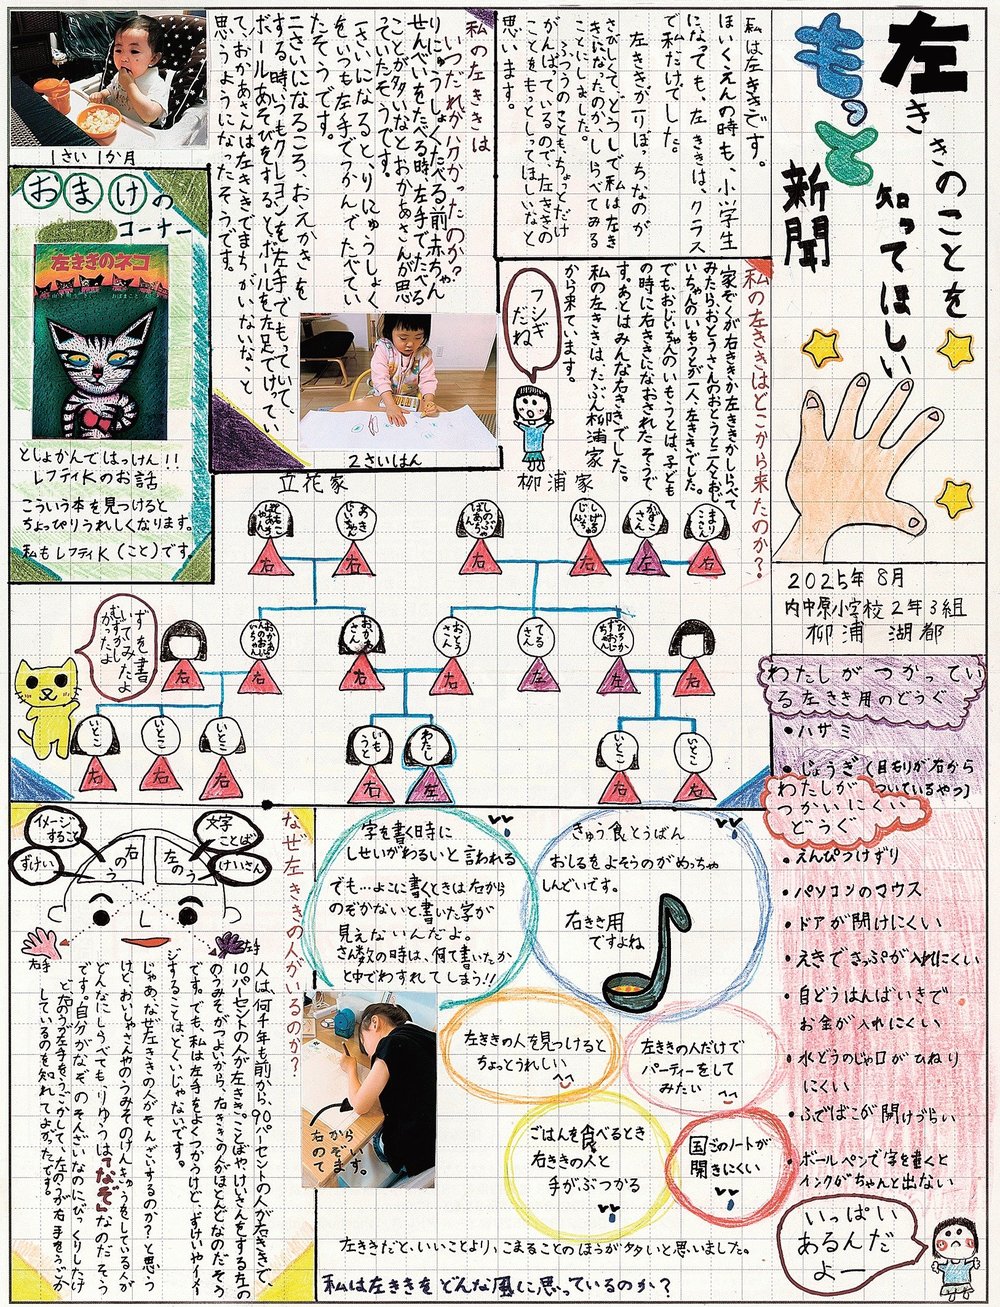 左ききのことを
もっと知ってほしい
新聞
2025年8月
内中原小学校2年3組
柳浦 湖都
私は左ききです。
ほいくえんの時も、小学生
になっても、左ききは、クラス
で私だけでした。
左ききがひとりぼっちなのが
さびしくて、どうして私は左き
きになったのか、しらべてみる
ことにしました。
ふつうのことも、ちょっとだけ
がんばっているので、左ききの
ことをもっとしってほしいなと
思います。
私の左ききは
いつだれがハクかったのか?
りにゅうしょくたべる前、赤ちゃん
せんべいをたべる時、左手でたべる
ことが多いなとおかあさんが思
っていたそうです。
一さいになると、りにゅうしょく
をいつも左手でつかんでたべてい
たそうです。
二さいになるころ、おえかきを
する時、いつもクレヨンを左手でもっていて、
ボールあそびをするとボールを左足でけってい
て、おかあさんは左ききでまちがいないな、と
思うようになったそうです。
1さい1か月
2さいはん
おまけの
コーナー
左ききのネコ
としょかんではっけん!!
レフティKのお話
こういう本を見つけると
ちょっぴりうれしくなります。
私もレフティK(こと)です。
私の左ききはどこから来たのか?
家ぞくが右ききか左ききかしらべて
みたら、おとうさんのおとうと二人とおじ
いちゃんのいもうとが一人、左ききでした。
でも、おじいちゃんのいもうとは、子ども
の時に右ききになおされたそうで
す。あとはみんな右ききでした。
私の左ききは、たぶん柳浦家
から来ています。
フシギ
だね
立花家
柳浦家
あきじいちゃん
右
右
のぶこばあちゃん
右
しげるじいじ
右
かずこさん
左
まりこさん
右
右
右
おかあさん
右
おとうさん
右
てるさん
左
左
右
いとこ
右
いとこ
右
いとこ
右
いもうと
右
わたし
左
いとこ
右
いとこ
右
ずを書
いてみたよ
むずかし
かったよ
わたしがつかってい
る左きき用のどうぐ
・ハサミ
・じょうぎ(目もりが右から
ついているやつ)
わたしが
つかいにくい
どうぐ
・えんぴつけずり
・パソコンのマウス
・ドアが開けにくい
・えきできっぷが入れにくい
・自どうはんばいきで
お金が入れにくい
・水どうのじゃ口がひねり
にくい
・ふでばこが開けづらい
・ボールペンで字を書くと
インクがちゃんと出ない
いっぱい
あるんだ
よー
なぜ左ききの人がいるのか?
イメージ
すること
ずけい
右
のう
左
のう
文字
ことば
けいさん
右手
左手
人は、何千年も前から、90パーセントの人が右ききで、
10パーセントの人が左きき。ことばやけいさんをする左の
のうみそがつよいから、右ききの人がほとんどなのだそう
です。でも、私は左手をよくつかうけど、ずけいやイメー
ジすることはとくいじゃないです。
じゃあ、なぜ左ききの人がそんざいするのか?と思う
けど、おいしゃさんやのうみそのけんきゅうをしている人が
どんなにしらべても、りゆうは「なぞ」なのだそう
です。自分がなぞのそんざいなのにびっくりしたけ
ど、右のうが左手をうごかして、左のうが右手をうごか
しているのを知れてよかったです。
字を書く時に
しせいがわるいと言われる
でも…よこに書くときは右から
のぞかないと書いた字が
見えないんだよ。
さん数の時は、何て書いたか
と中でわすれてしまう!!
きゅう食とうばん
おしるをよそうのがめっちゃ
しんどいです。
右きき用
ですよね
右から
のぞいて
ます。
左ききの人を見つけると
ちょっとうれしい
左ききの人だけで
パーティーをして
みたい
ごはんを食べるとき
右ききの人と
手がぶつかる
国ごのノートが
開きにくい
左ききだと、いいことより、こまることのほうが多いと思いました。
私は左ききをどんな風に思っているのか?